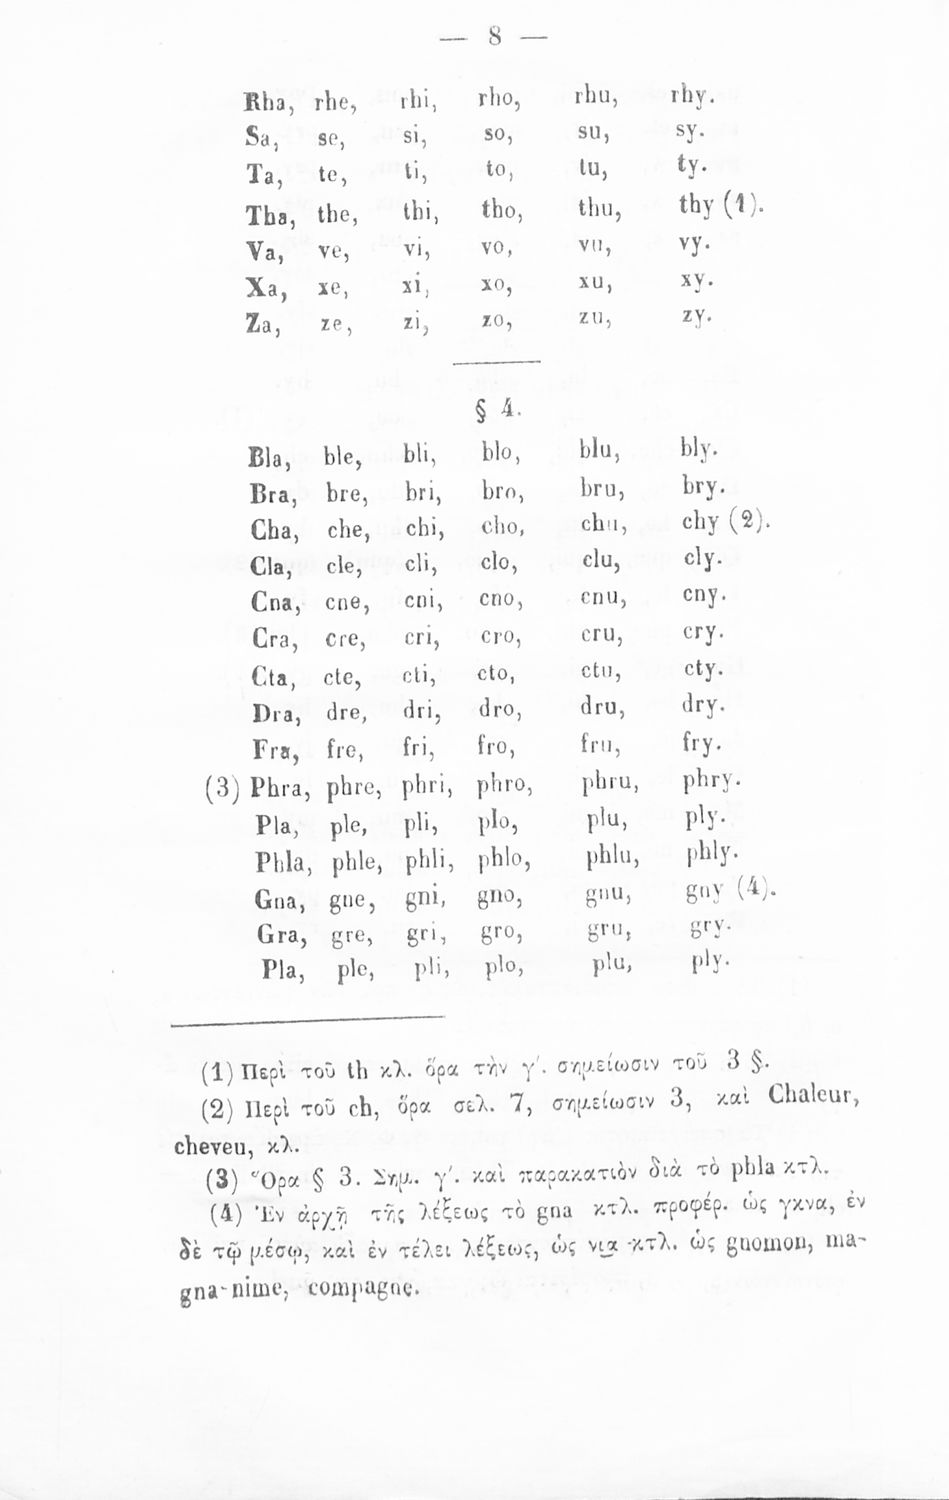 — 8 —
Rha, rhe, rhi, rho, rhu, rhy.
Sa, se, si, so, su, sy.
Ta, te, ti, to, tu, ty.
Tha, the, thi, tho, thu, thy (1).
Va, ve, vi, vo, vu, vy.
Xa, xe, xi, xo, xu, xy.
Za, ze, zi, zo, zu, zy.
§ 4.
Bla, ble, bli, blo, blu, bly.
Bra, bre, bri, bro, bru, bry.
Cha, che, chi, cho, chu, chy (2).
Cla, cle, cli, clo, clu, cly.
Cna, cne, cni, cno, cnu, cny.
Cra, cre, cri, cro, cru, cry.
Cta, cte, cti, cto, ctu, cty.
Dra, dre, dri, dro, dru, dry.
Fra, fre, fri, fro, fru, fry.
(3) Phra, phre, phri, phro, phru, phry.
Pla, ple, pli, plo, plu, ply.
Phla, phle, phli, phlo, phlu, phly.
Gna, gne, gni, gno, gnu, gny (4).
Gra, gre, gri, gro, gru, gry.
Pla, ple, pli, plo, plu, ply.
(1) Περὶ τοῦ th κλ. ὅρα τὴν γ΄. σημείωσιν τοῦ 3 §.
(2) Περὶ τοῦ ch, ὅρα σελ. 7, σημείωσιν 3, καὶ Chaleur,
cheveu, κλ.
(3) Ὅρα § 3. Σημ. γ΄. καὶ παρακατιὸν διὰ τὸ phla κτλ.
(4) Ἐν ἀρχῇ τῆς λέξεως τὸ gna κτλ. προφέρ. ὡς γκνα, ἐν
δὲ τῷ μέσῳ, καὶ ἐν τέλει λέξεως, ὡς νια κτλ. ὡς gnomon, ma-
gna-nime, compagne.